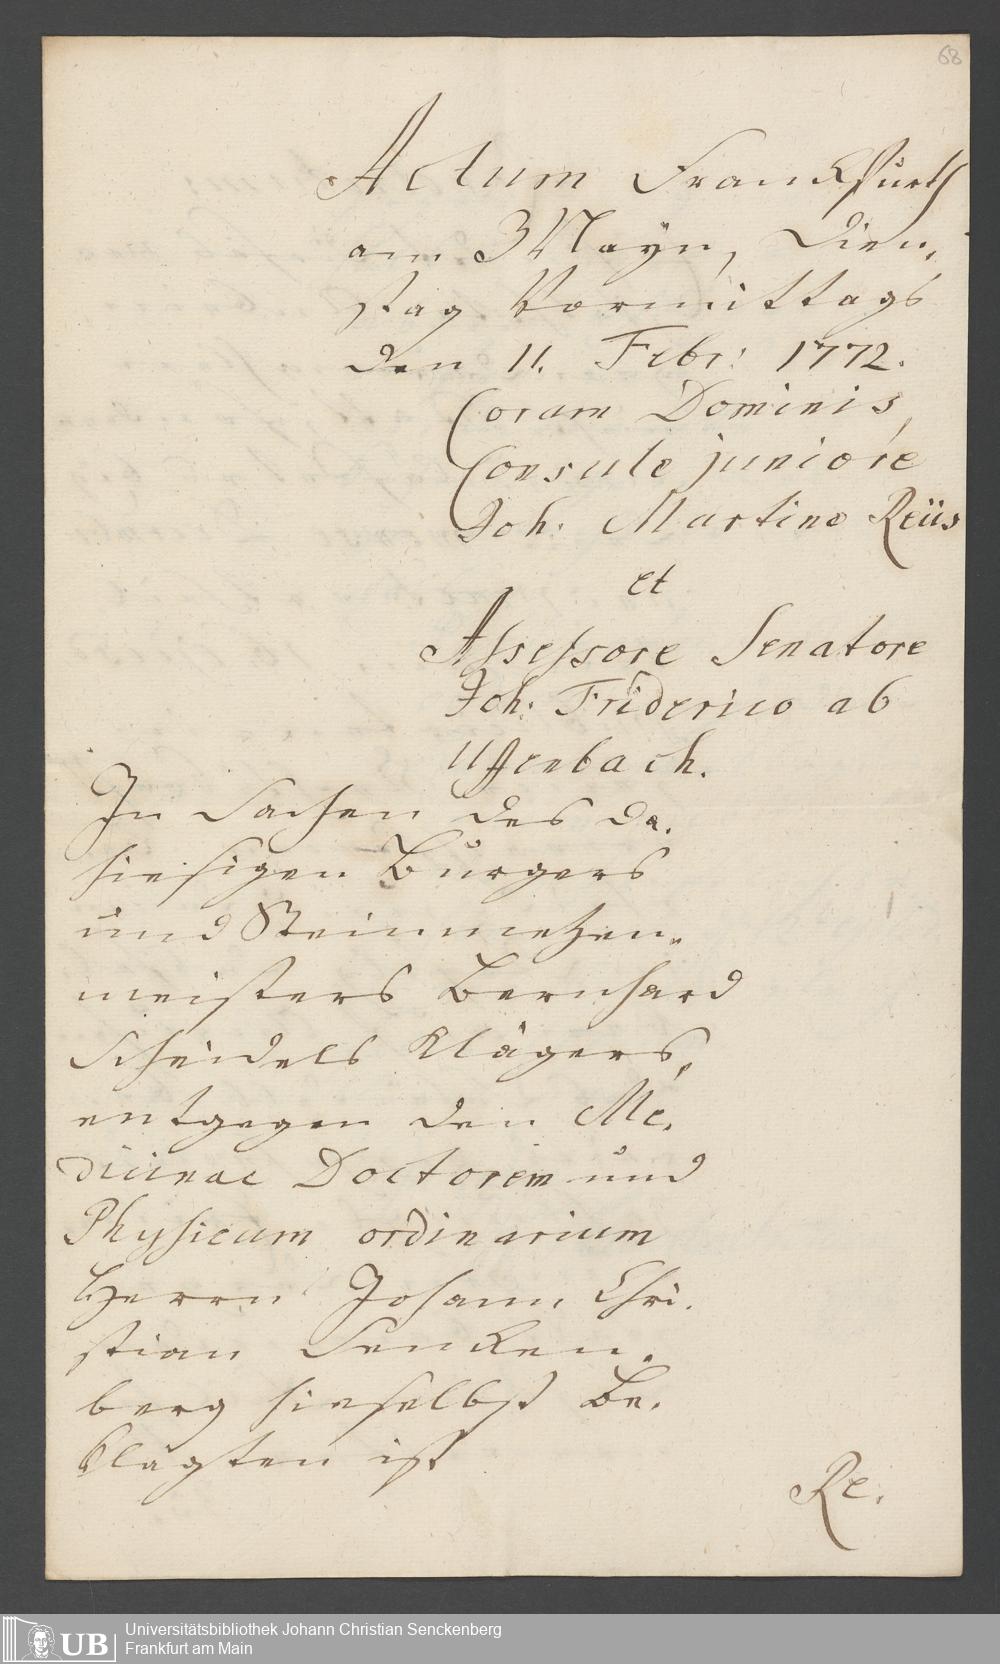 68
Actum Franckfurth
am Mayn, Dien,
stag Vormittags
den 11. Febr: 1772.
Coram Dominis
Consule juniore
Joh: Martino Reüs
et
Assessore Senatore
Joh: Friderico ab
Uffenbach.
In Sachen des da,
hiesigen Burgers
und Steinmetzen„
meisters Bernhard
Scheidels Klägers,
entgegen den Me,
dicinae Doctorem und
Physicum ordinarium
Herrn Johann Chri,
stian Sencken,
berg hieselbst Be,
klagten ist
Re,
UB
Universitätsbibliothek Johann Christian Senckenberg
Frankfurt am Main